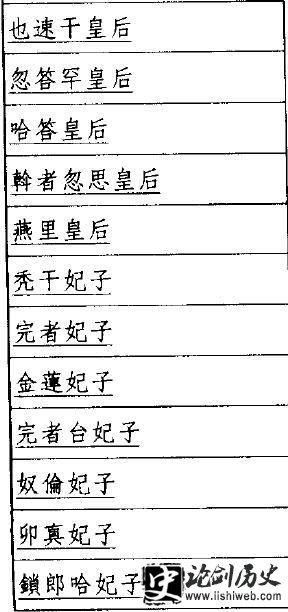 也速干皇后
忽答罕皇后
哈答皇后
斡者忽思皇后
燕里皇后
禿干妃子
完者妃子
金蓮妃子
完者台妃子
奴倫妃子
卯真妃子
鎖郎哈妃子
史 论剑历史
www.lishiweb.com